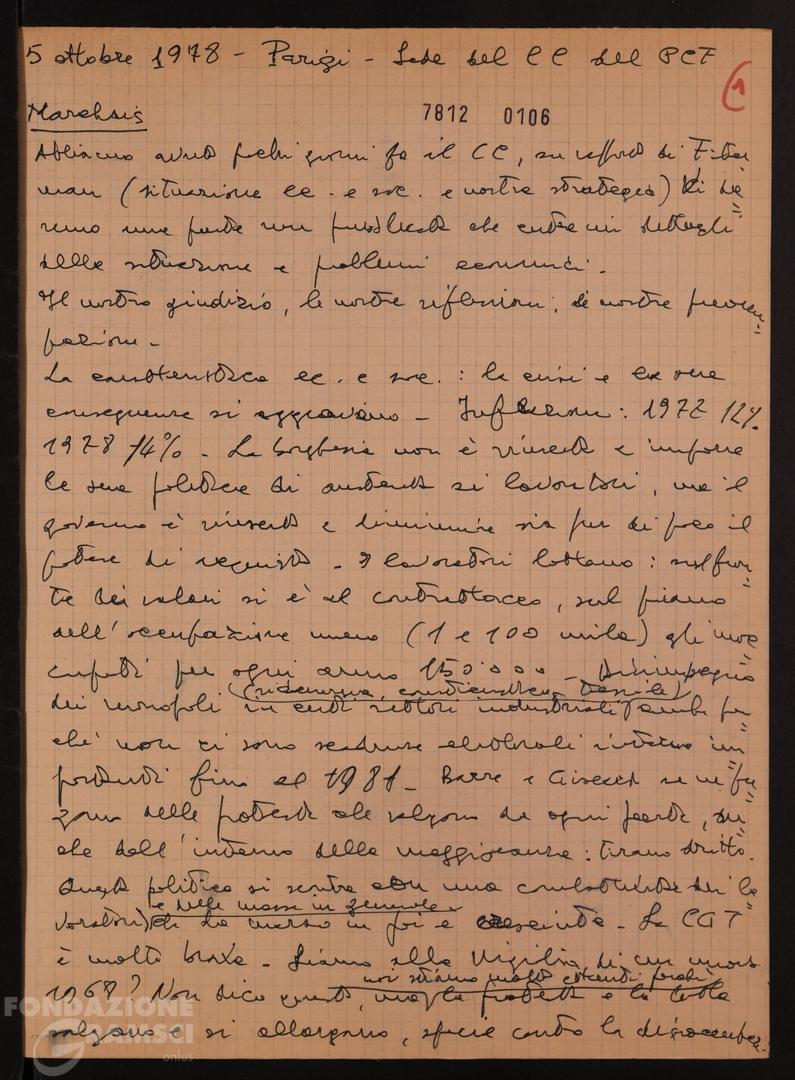 5 ottobre 1978 - Parigi - Sede del CC del PCF
1
Marchais
7812 0106
Abbiamo avuto pochi giorni fa il CC, su rapporto di Fiter
man (situazione ec. e soc. e nostra strategia) Vi da
remo una parte non pubblicata che entra in dettagli
della situazione e problemi economici.
Il nostro giudizio, le nostre riflessioni, le nostre preoccu
pazioni -
La caratteristica ec. e soc.: la crisi e le sue
conseguenze si aggravano - Inflazione: 1977 12%
1978 14% - La borghesia non è riuscita a imporre
la sua politica di austerità ai lavoratori, ma il
governo è riuscito a diminuire sia pur di poco il
potere di acquisto - I lavoratori lottano: sul fron
te dei salari si è al contrattacco, sul piano
dell'occupazione meno (1 e 100 mila) gli inoc
cupati per ogni anno 150.000 - Disimpegno
(siderurgia, cantieristica, tessile)
dei monopoli in certi settori industriali anche per
ché non ci sono scadenze elettorali interne im
portanti fino al 1981 - Barre e Giscard se ne fre
gano delle proteste che salgono da ogni parte, an
che dall'interno della maggioranza: tirano dritto.
Questa politica si scontra con una combattività dei la
e delle masse in generale
voratori che va meno in poi e crescente - La CGT
è molto brava - Siamo alla vigilia di un nuovo
noi stiamo molto attenti perché
1968? Non dico questo, ma la protesta e la lotta
salgono e si allargano, specie contro la disoccupaz.
FONDAZIONE
GRAMSCI
onlus